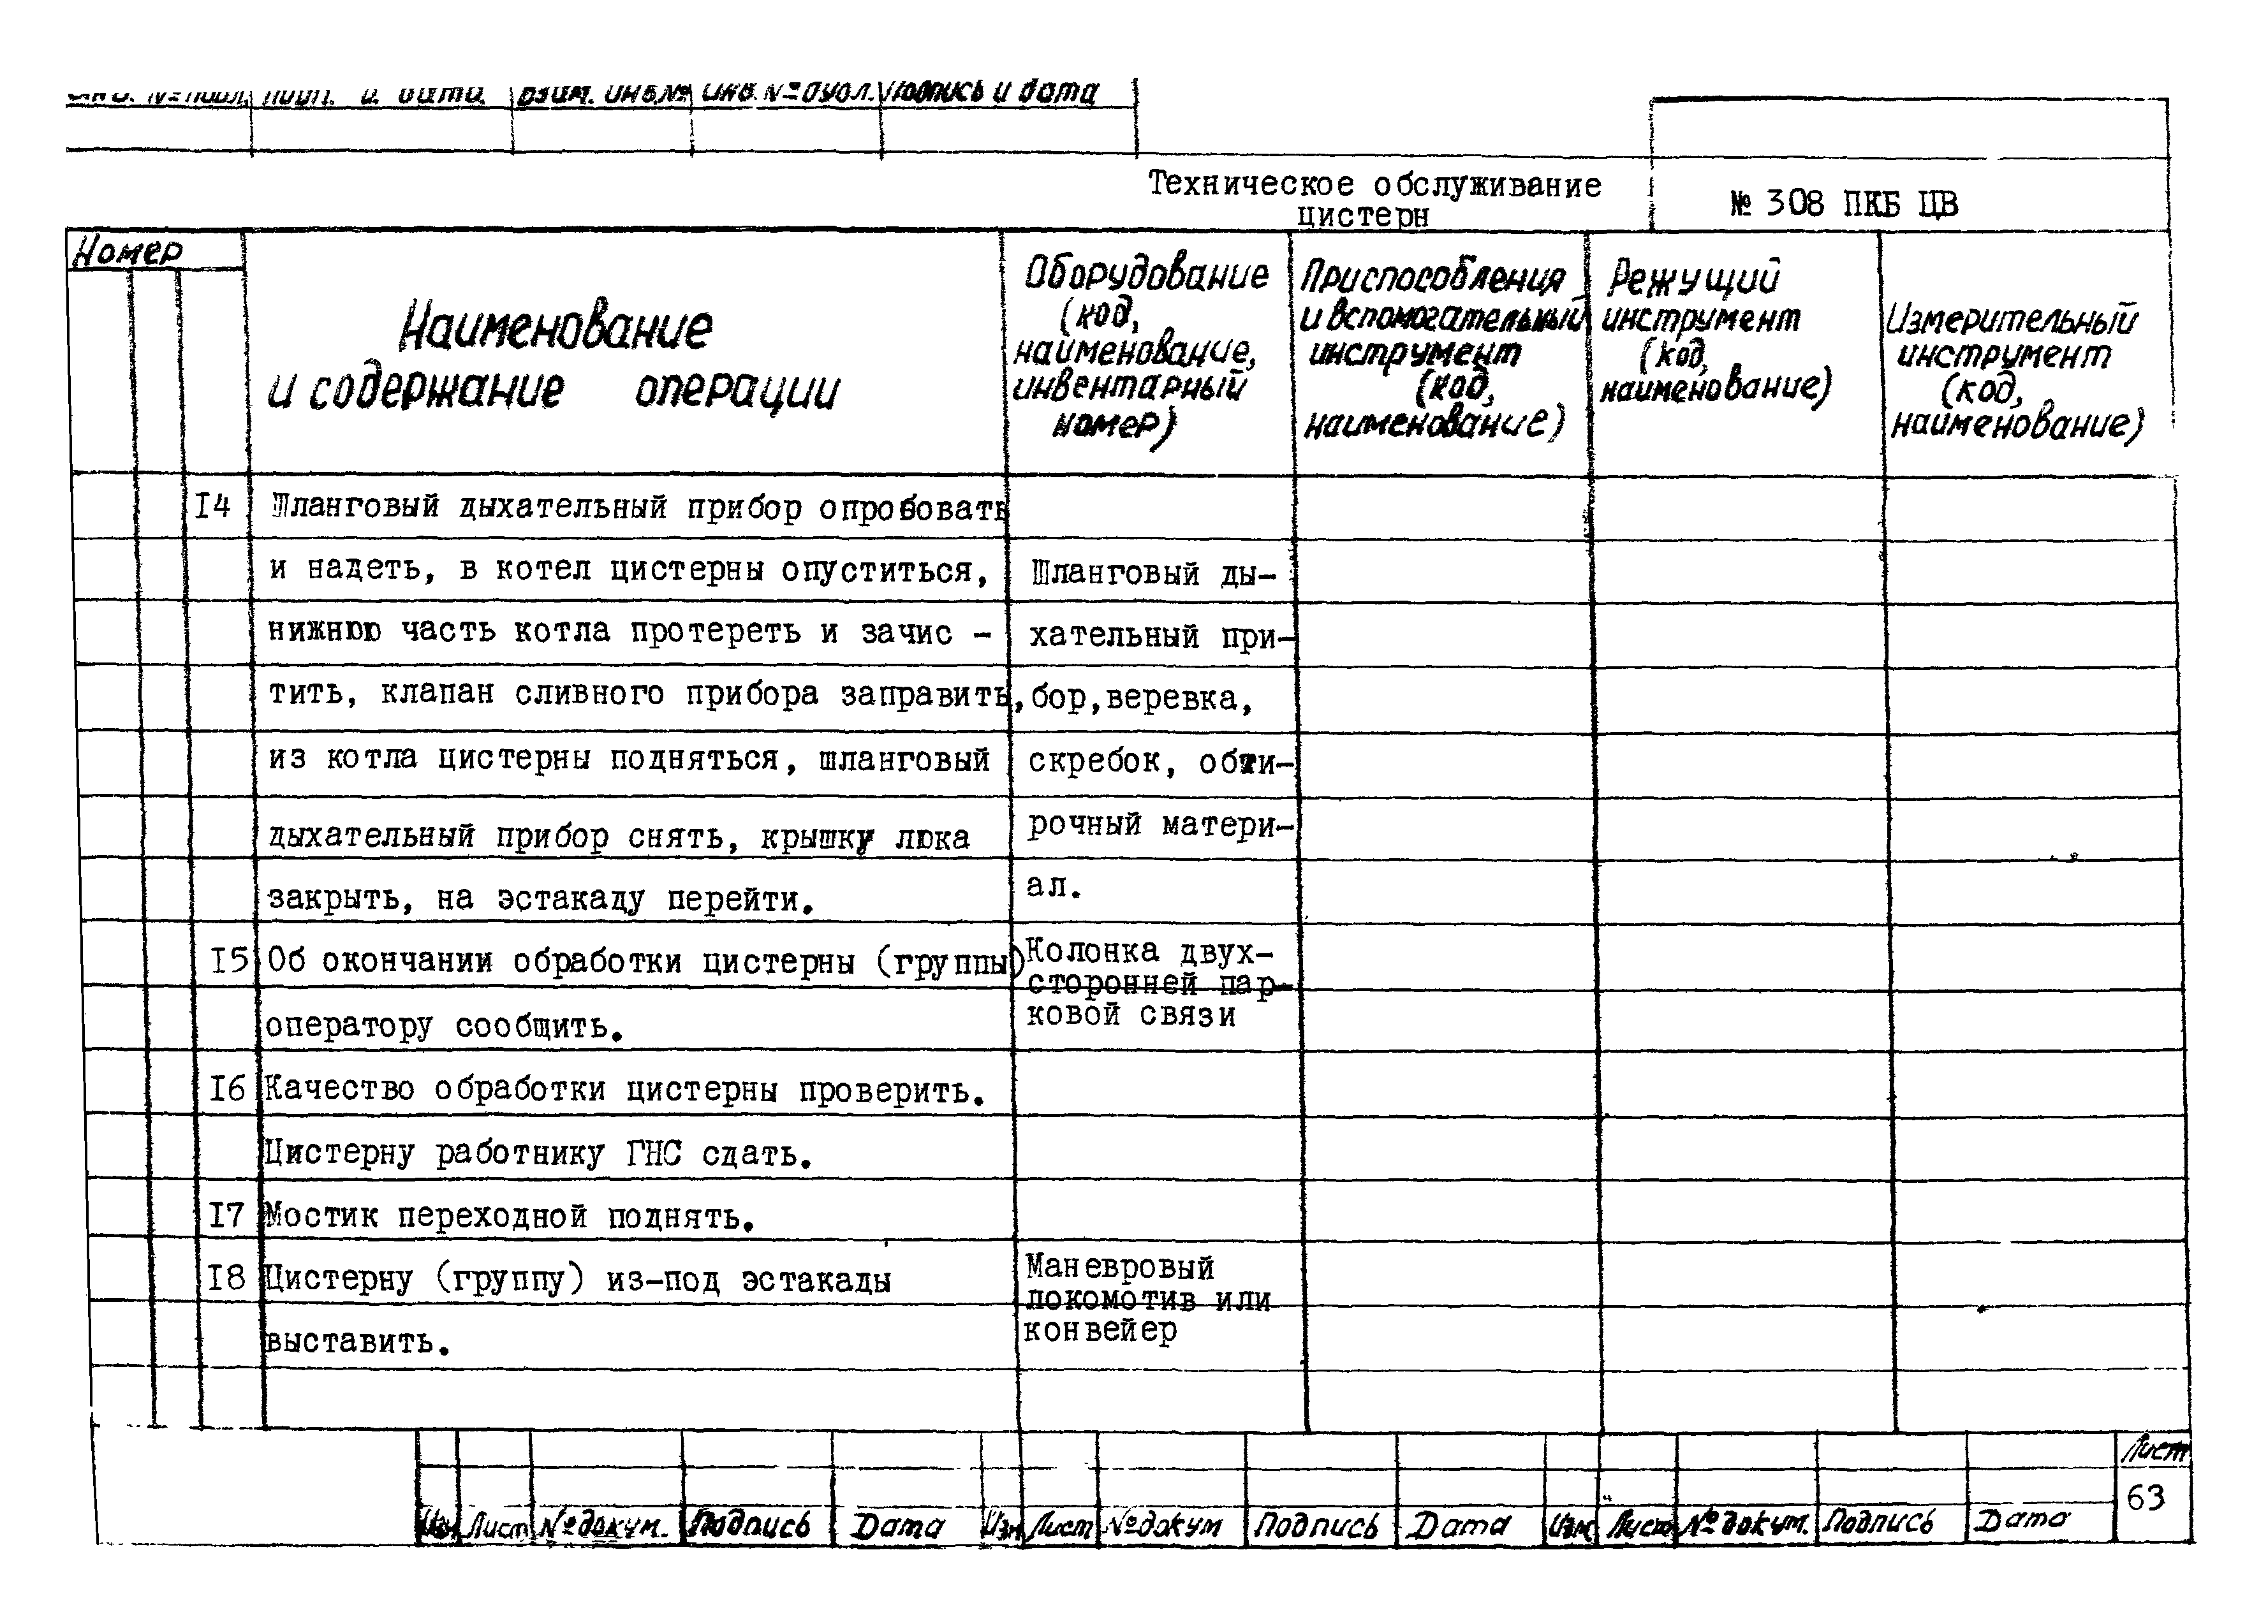 Инв. №подл. Подп. и дата Взам. инв.№ Инв. №дубл. Подпись и дата
Техническое обслуживание
цистерн
№ 308 ПКБ ЦВ
Номер
Наименование
и содержание операции
Оборудование
(код,
наименование,
инвентарный
номер)
Приспособления
и вспомогательный
инструмент
(код,
наименование)
Режущий
инструмент
(код,
наименование)
Измерительный
инструмент
(код,
наименование)
I4 Шланговый дыхательный прибор опробовать
и надеть, в котел цистерны опуститься,
нижнюю часть котла протереть и зачис -
тить, клапан сливного прибора заправить,
из котла цистерны подняться, шланговый
дыхательный прибор снять, крышку люка
закрыть, на эстакаду перейти.
Шланговый ды-
хательный при-
бор, веревка,
скребок, обти-
рочный матери-
ал.
I5 Об окончании обработки цистерны (группы)
оператору сообщить.
Колонка двух-
сторонней пар-
ковой связи
I6 Качество обработки цистерны проверить.
Цистерну работнику ГНС сдать.
I7 Мостик переходной поднять.
I8 Цистерну (группу) из-под эстакады
выставить.
Маневровый
локомотив или
конвейер
Изм Лист №докум. Подпись Дата Изм Лист №докум Подпись Дата Изм Лист №докум. Подпись Дата
Лист
63